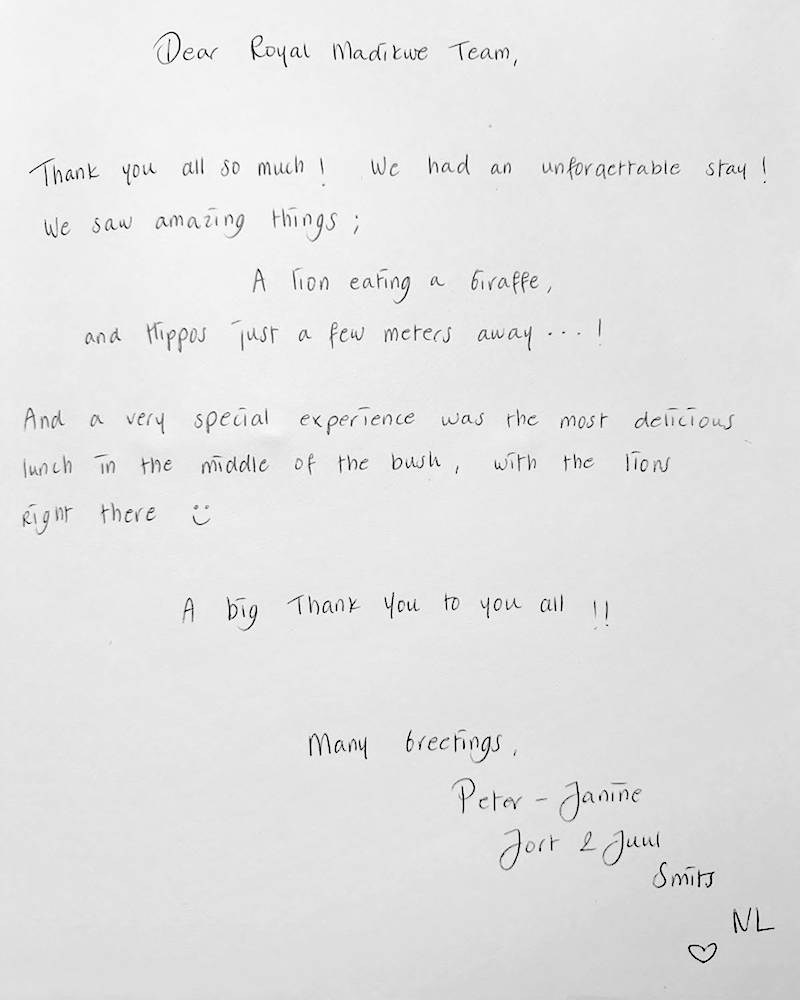 Dear Royal Madikwe Team,
Thank you all so much! We had an unforgettable stay!
We saw amazing things;
A lion eating a Giraffe,
and Hippos just a few meters away...!
And a very special experience was the most delicious
lunch in the middle of the bush, with the lions
right there ☺
A big Thank You to you all !!
Many Greetings,
Peter - Janine
Jort & Juul
Smits
NL
♡